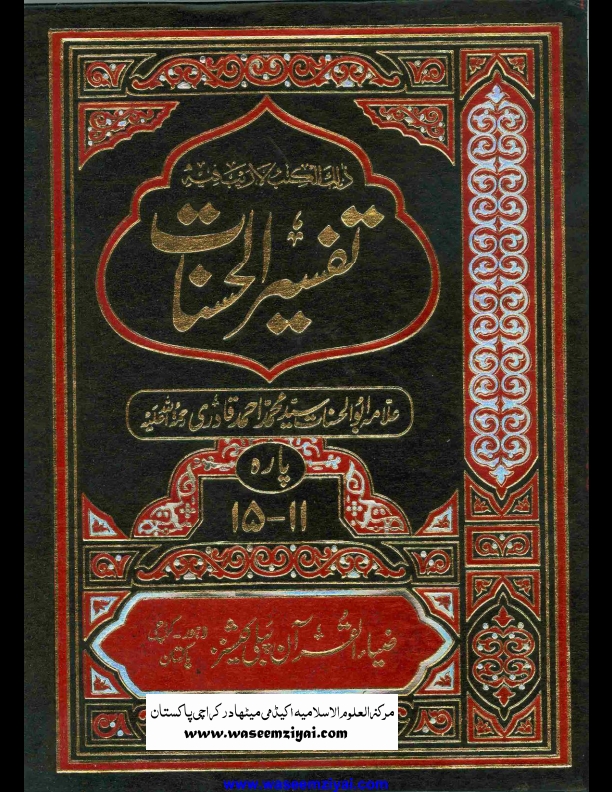 ذلك الكتب لا ريب فيه
تفسیر الحسنات
علامہ ابوالحسنات سید محمد احمد قادری رحمۃ اللہ علیہ
پارہ
۱۱-۱۵
ضیاء القرآن پبلی کیشنز لاہور-کراچی پاکستان
مرکز العلوم الاسلامیہ اکیڈمی میٹھادر کراچی پاکستان
www.waseemziyai.com
www.waseemziyai.com